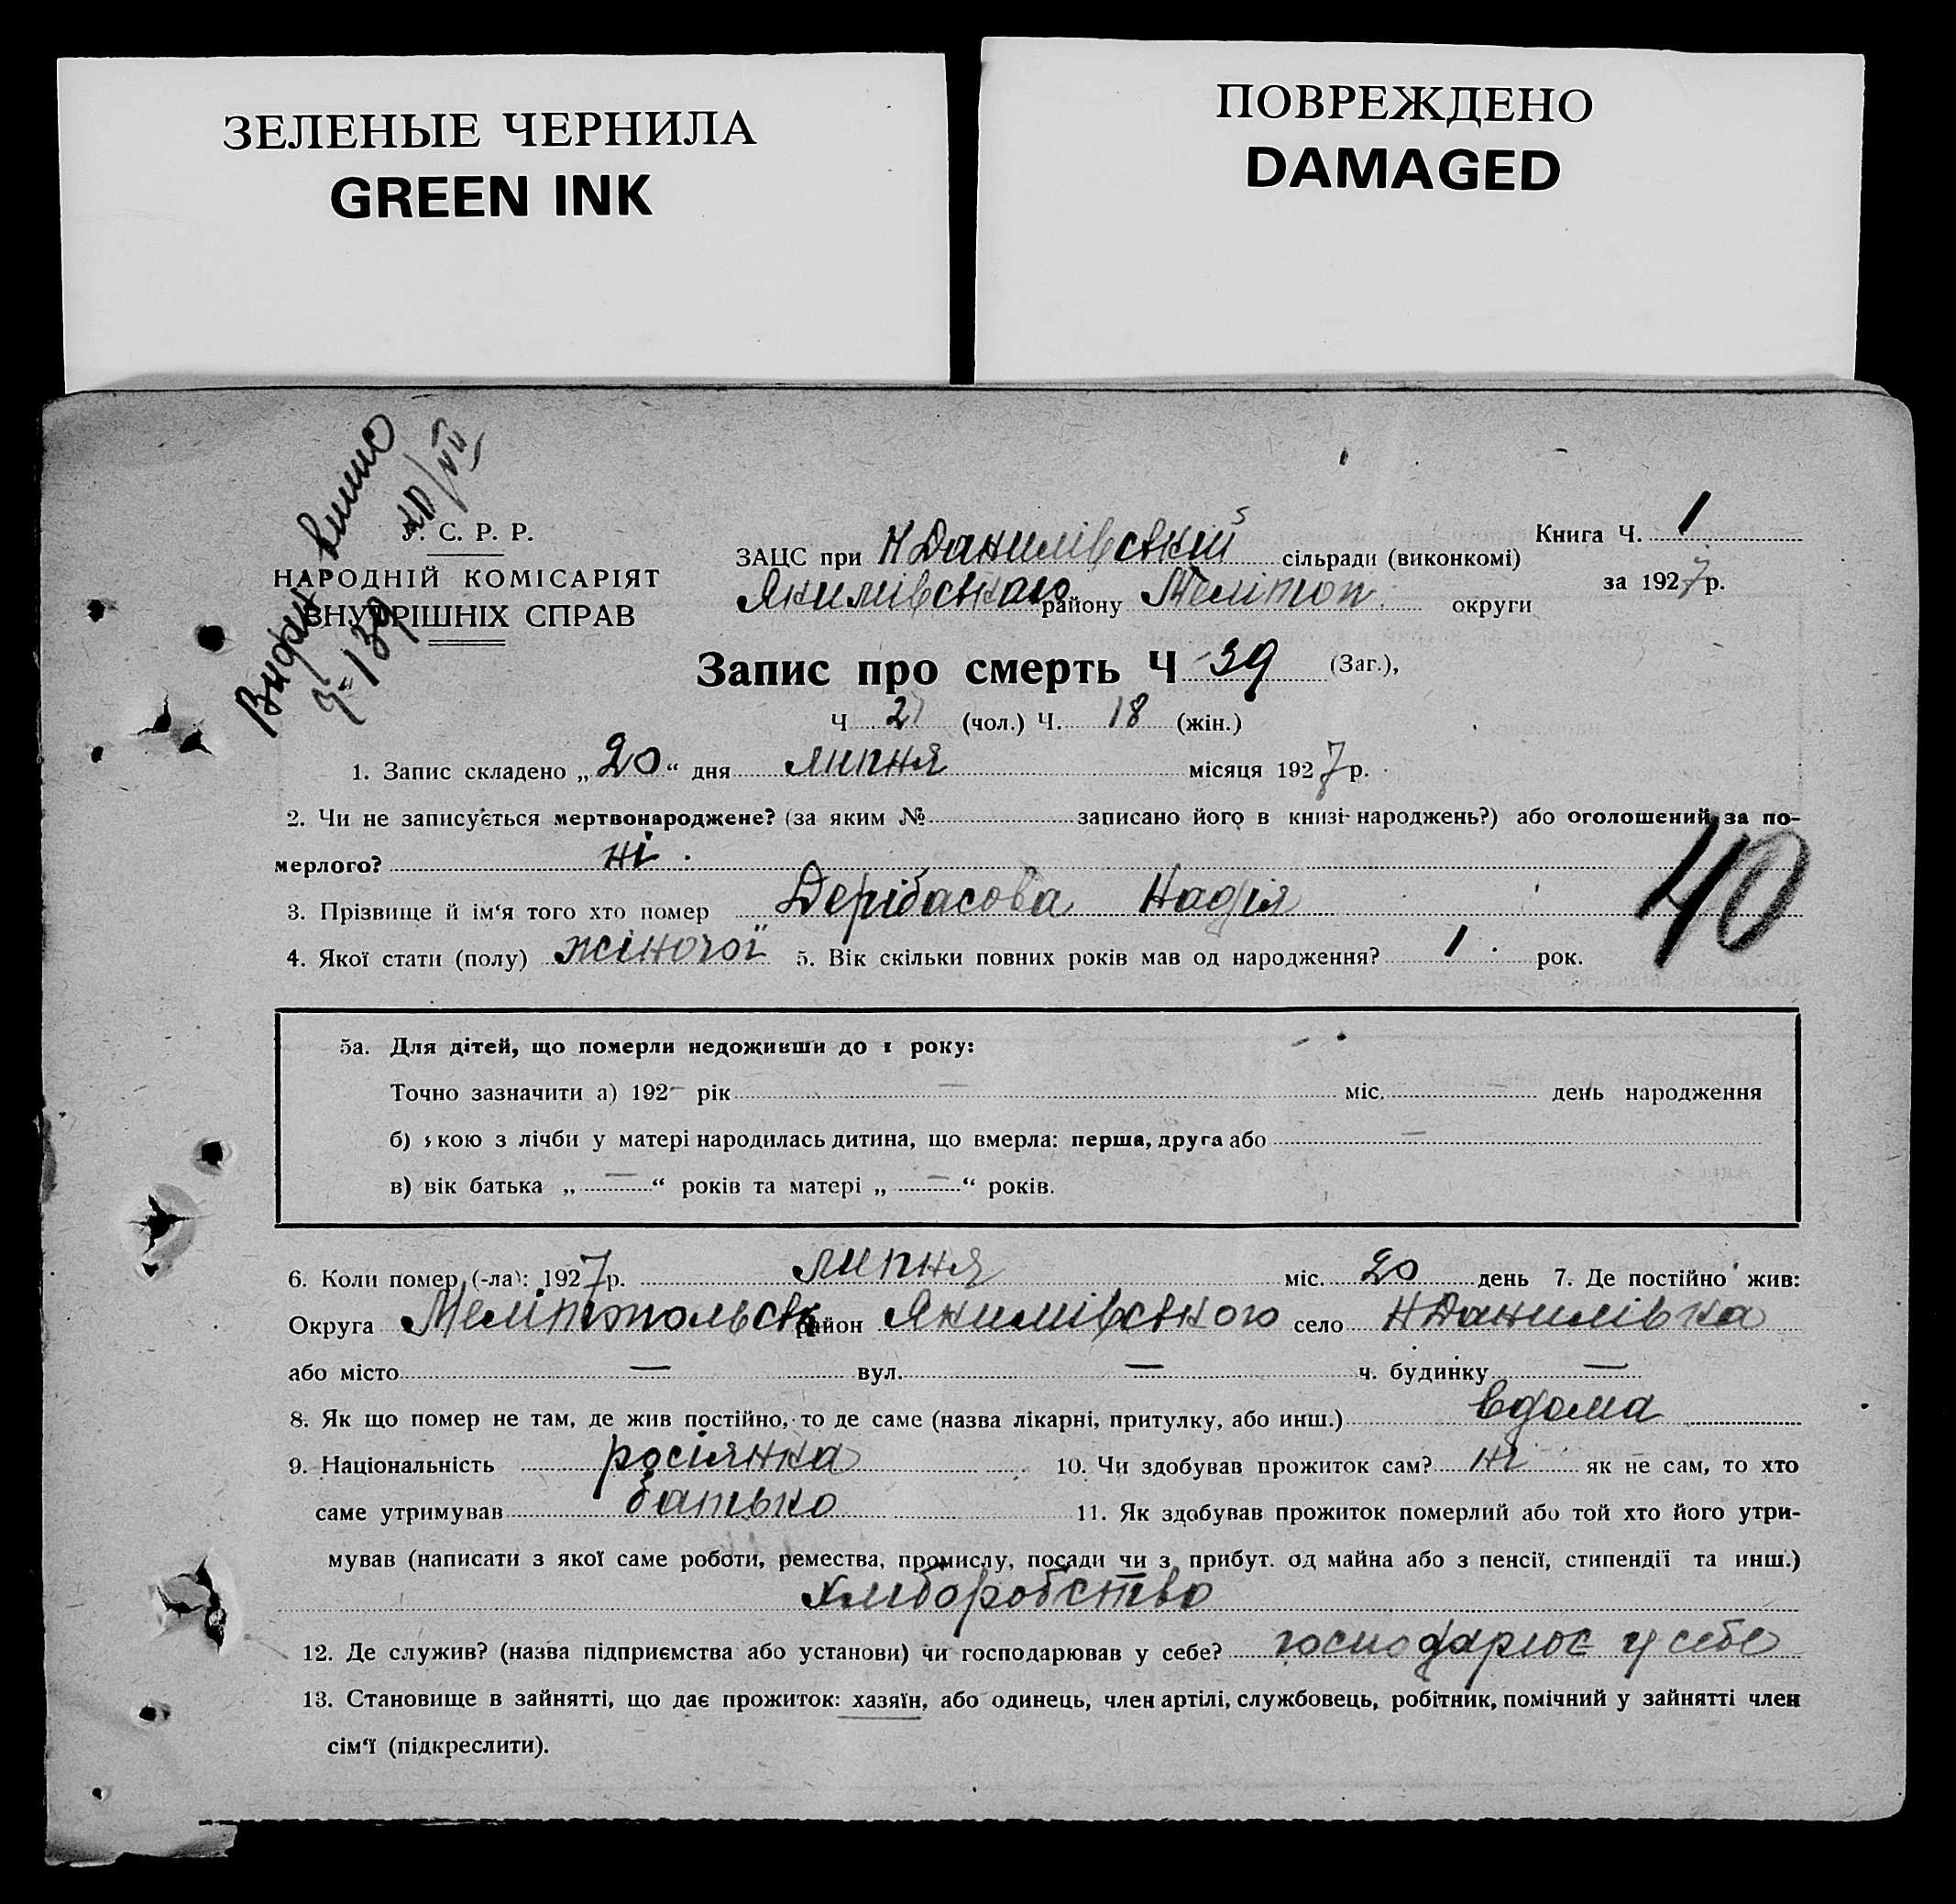 ЗЕЛЕНЫЕ ЧЕРНИЛА
GREEN INK
ПОВРЕЖДЕНО
DAMAGED
У. С. Р. Р.
НАРОДНІЙ КОМІСАРІЯТ
ВНУТРІШНІХ СПРАВ
ЗАЦС при Н Данилівській сільради (виконкомі)
Якимівського району Мелітоп. округи
Книга Ч. 1
за 1927 р.
Запис про смерть Ч 39 (Заг.),
Ч 21 (чол.) Ч. 18 (жін.)
1. Запис складено „20“ дня липня місяця 1927 р.
2. Чи не записується мертвонароджене? (за яким № записано його в книзі народжень?) або оголошений за по-
мерлого? ні.
40
3. Прізвище й ім‘я того хто помер Дерібасова Надія
4. Якої стати (полу) жіночої 5. Вік скільки повних років мав од народження? 1. рок.
5а. Для дітей, що померли недоживши до 1 року:
Точно зазначити а) 192– рік – міс. – день народження
б) якою з лічби у матері народилась дитина, що вмерла: перша, друга або –
в) вік батька „—“ років та матері „—“ років.
6. Коли помер (-ла): 1927 р. липня міс. 20 день 7. Де постійно жив:
Округа Мелітопольськ район Якимівського село Н Данилівка
або місто — вул. — ч. будинку —
8. Як що помер не там, де жив постійно, то де саме (назва лікарні, притулку, або инш.) вдома
9. Національність росіянка 10. Чи здобував прожиток сам? ні як не сам, то хто
саме утримував батько 11. Як здобував прожиток померлий або той хто його утри-
мував (написати з якої саме роботи, ремества, промислу, посади чи з прибут. од майна або з пенсії, стипендії та инш.)
хліборобство
12. Де служив? (назва підприємства або установи) чи господарював у себе? господарює у себе
13. Становище в зайнятті, що дає прожиток: хазяїн, або одинець, член артілі, службовець, робітник, помічний у зайнятті член
сім‘ї (підкреслити).